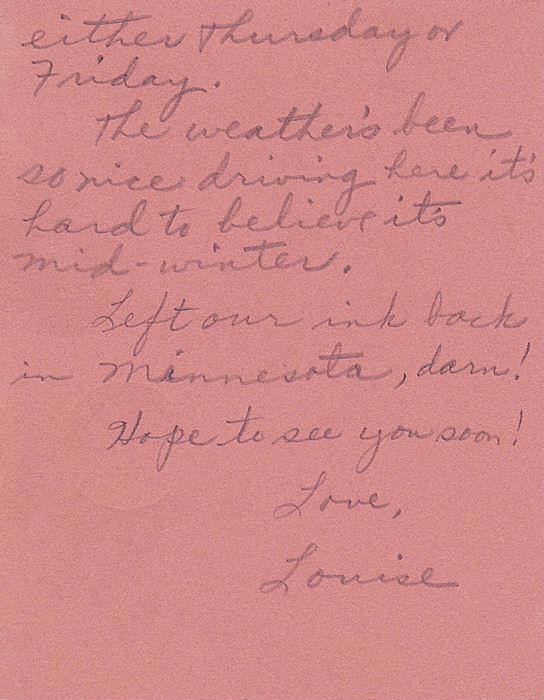 either Thursday or
Friday.
The weather's been
so nice driving here it's
hard to believe it's
mid-winter.
Left our ink back
in Minnesota, darn!
Hope to see you soon!
Love,
Louise